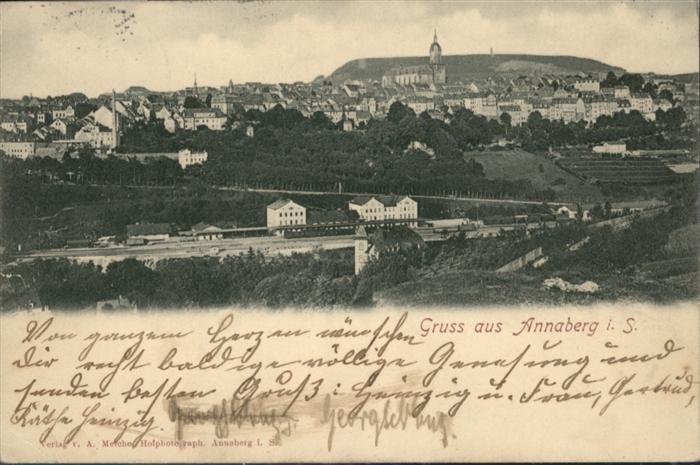 Gruss aus Annaberg i. S.
Von ganzem Herzen wünschen
Dir recht baldige völlige Genesung und
senden besten Gruß: Heinzig u. Frau, Gertrud,
Käthe Heinzig.
Verlag v. A. Meiche, Hofphotograph, Annaberg i. S.